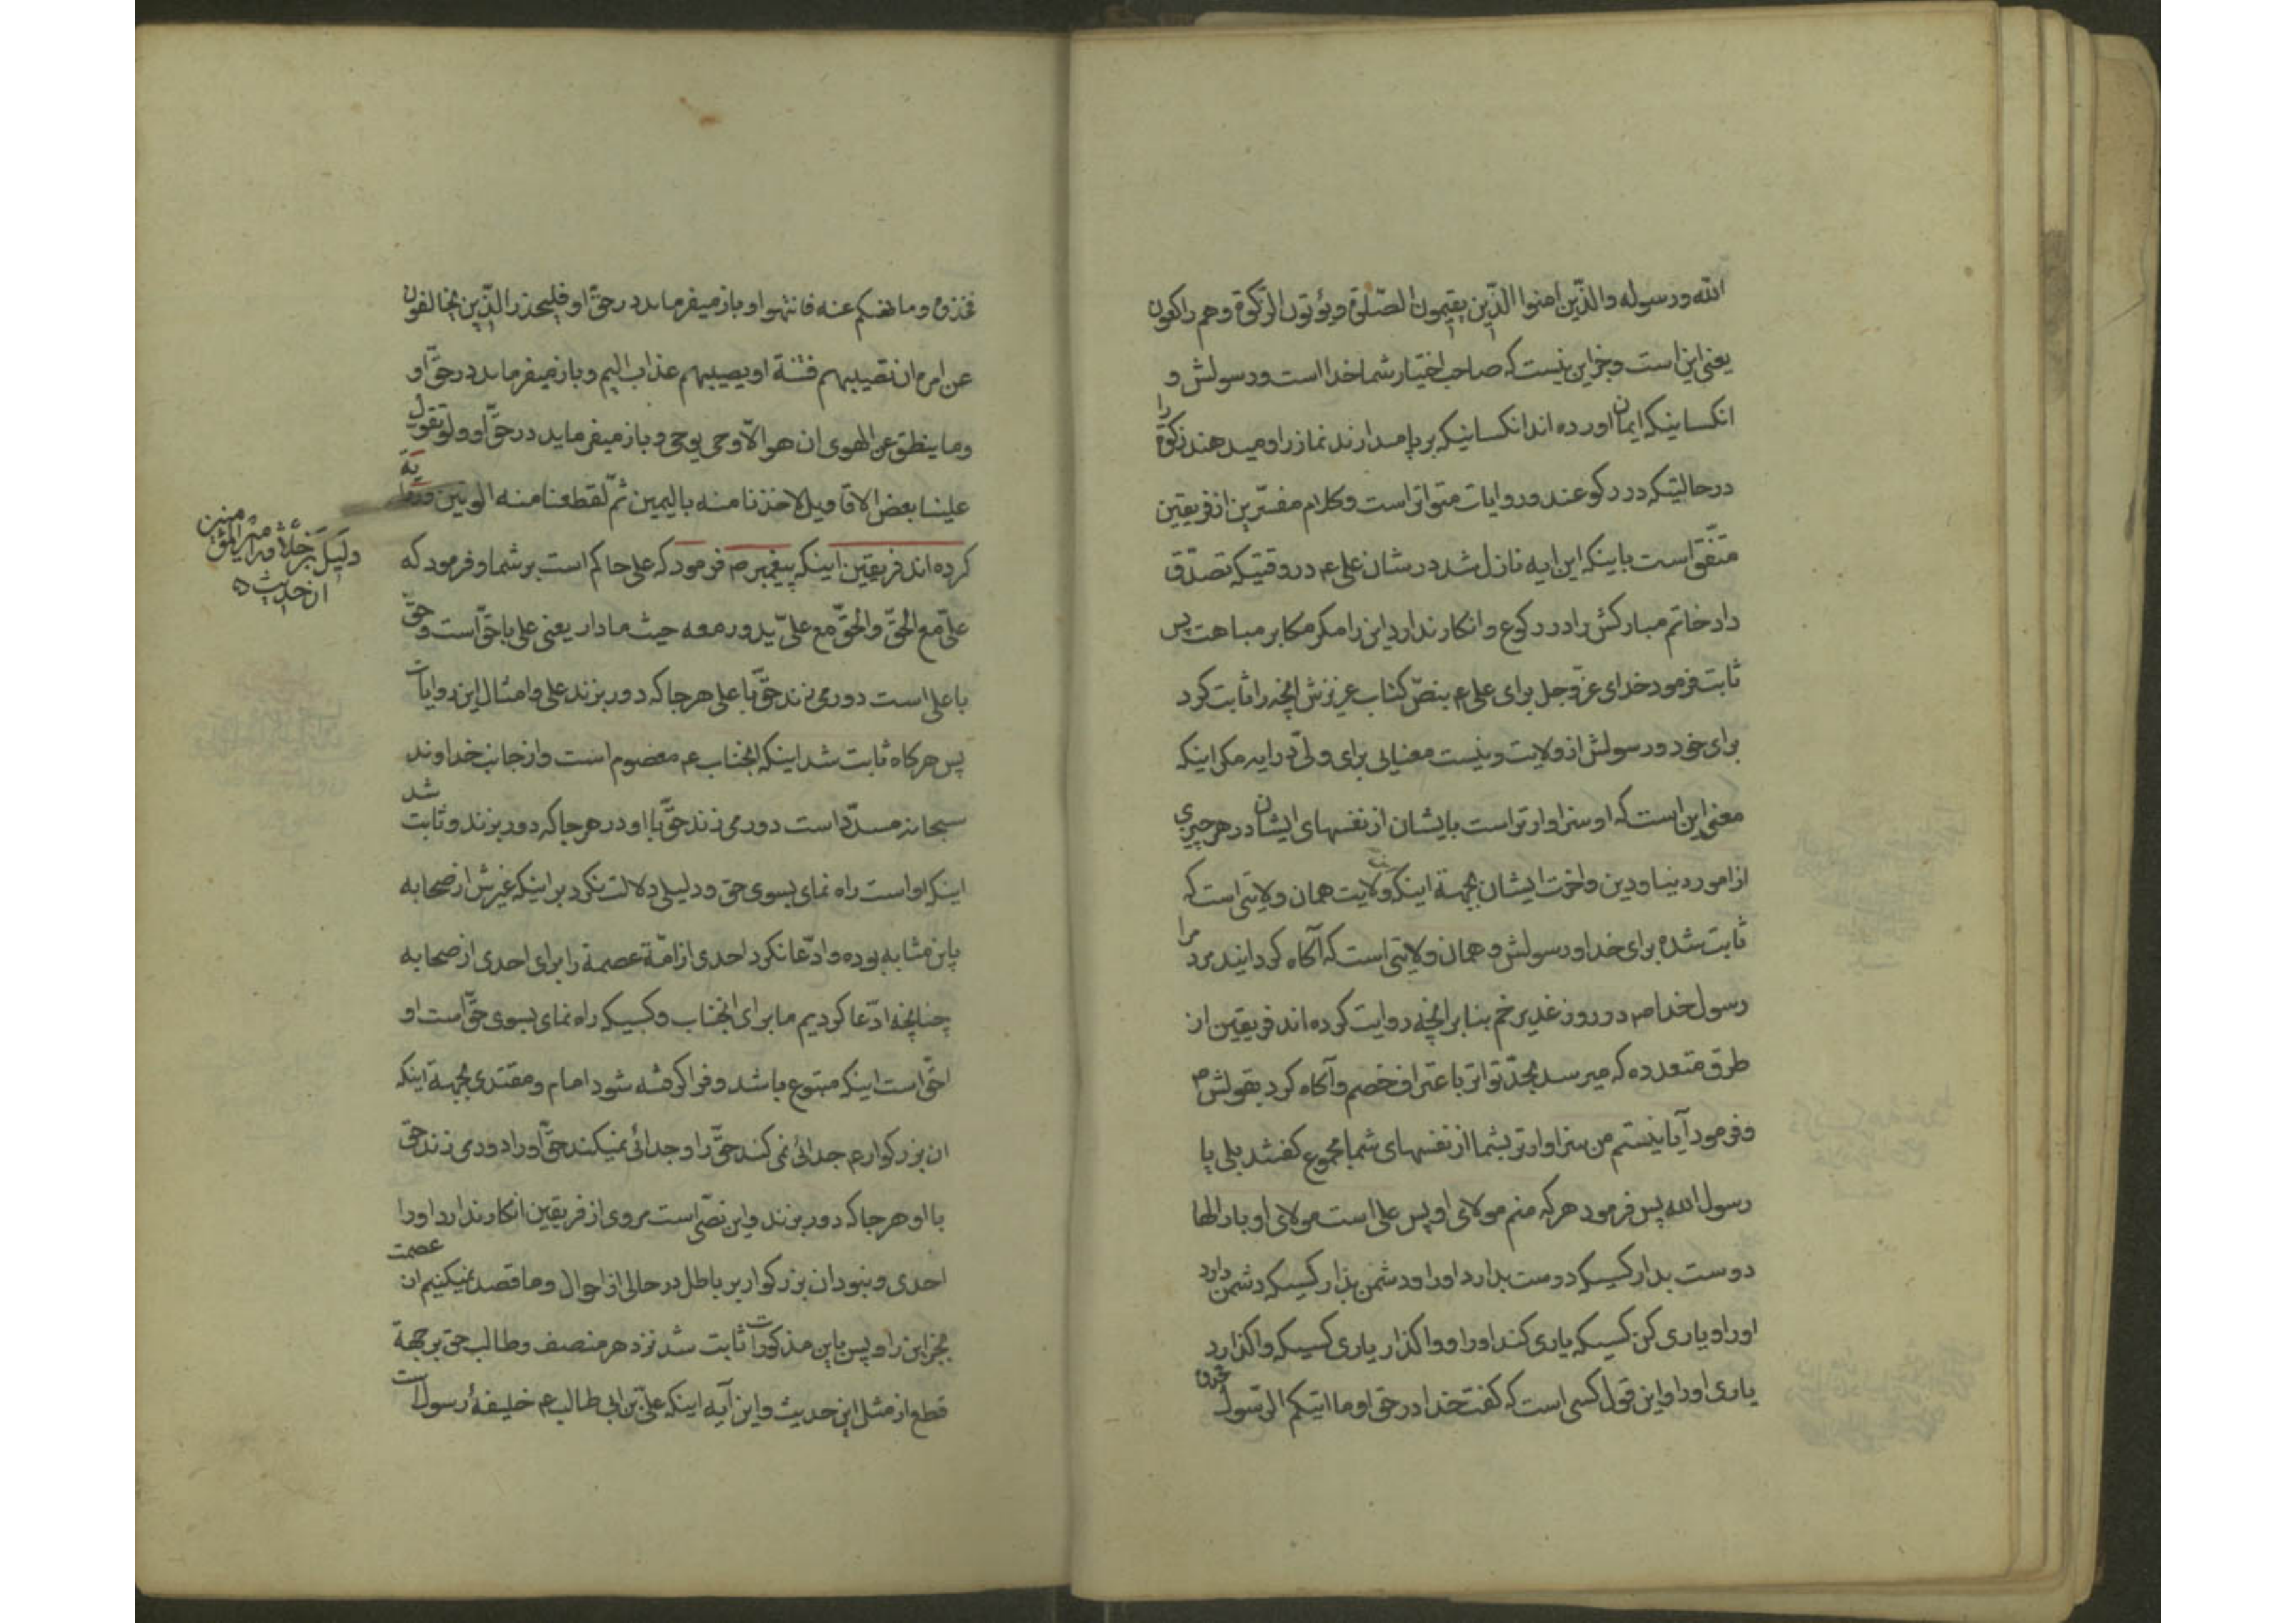 الله ورسوله والذّین امنوا الذّین یقیمون الصّلوة ویؤتون الزّکوة وهم راکعون
یعنی این است وجز این نیست که صاحب اختیار شما خدا است ورسولش و
انکسانیکه ایمان اورده اند انکسانیکه برپا میدارند نماز را ومیدهند زکوة را
درحالتیکه در رکوعند وروایات متواتر است وکلام مفسّرین از فریقین
متّفق است باینکه این ایه نازل شد در شان علی ع در وقتیکه تصدّق
داد خاتم مبارکش را در رکوع وانکار ندارد این را مکر مکابر مباهت پس
ثابت فرمود خدای عزّ وجل برای علی ع بنصّ کتاب عزیزش انچه را ثابت کرد
برای خود ورسولش از ولایت ونیست معنیائی برای ولیّ در ایه مکر اینکه
معنی این است که او سزاوارتر است بایشان از نفسهای ایشان در هر چیزی
از امور دنیا ودین واخرت ایشان بجهة اینکه ولایت همان ولایتی است که
ثابت شده برای خدا ورسولش وهمان ولایتی است که آکاه کردانید مردم را
رسول خدا ص در روز غدیر خم بنا بر انچه روایت کرده اند فریقین از
طرق متعدده که میرسد بحدّ تواتر باعتراف خصم وآکاه کرد بقولش ص
وفرمود آیا نیستم من سزاوارتر بشما از نفسهای شما مجموع کفتند بلی یا
رسول الله پس فرمود هرکه منم مولای او پس علی است مولای او بار الها
دوست بدار کسیکه دوست بدارد اورا ودشمن بدار کسیکه دشمن دارد
اورا ویاری کن کسیکه یاری کند اورا وواکذار یاری کسیکه واکذارد
یاری اورا واین قول کسی است که کفت خدا در حق او وما اتیکم الرّسول فخذوه
فخذوه وما نهیکم عنه فانتهوا وباز میفرماید در حقّ او فلیحذر الذّین یخالفون
عن امره ان تصیبهم فتنة او یصیبهم عذاب الیم وباز میفرماید در حقّ او
وما ینطق عن الهوی ان هو الّا وحی یوحی وباز میفرماید در حقّ او ولو تقوّل
علینا بعض الاقاویل لاخذنا منه بالیمین ثمّ لقطعنا منه الوتین
کرده اند فریقین اینکه پیغمبر ص فرمود که علی حاکم است بر شما وفرمود که
علیّ مع الحقّ والحقّ مع علیّ یدور معه حیث ما دار یعنی علی با حقّ است وحقّ
با علی است دور می زند حقّ با علی هرجا که دور بزند علی وامثال این روایات
پس هرکاه ثابت شد اینکه انجناب ع معصوم است واز جانب خداوند
سبحانه مسدّد است دور می زند حقّ با او در هرجا که دور بزند وثابت شد
اینکه او است راه نمای بسوی حق ودلیلی دلالت نکرد بر اینکه غیرش از صحابه
باین مثابه بوده وادّعا نکرد احدی از امّة عصمة را برای احدی از صحابه
چنانچه ادّعا کردیم ما برای انجناب وکسیکه راه نمای بسوی حقّ است او
احقّ است اینکه متبوع باشد وفرا کرفته شود امام ومقتدی بجهة اینکه
ان بزرکوار ع جدائی نمی کند حقّ را وجدائی نمیکند حقّ اورا ودور می زند حقّ
با او هرجا که دور بزند واین نصّی است مروی از فریقین انکار ندارد اورا
احدی ونبود ان بزرکوار بر باطل در حالی از احوال وما قصد نمیکنیم از عصمت
بجز این را وپس باین مذکورات ثابت شد نزد هر منصف وطالب حق بر جهة
قطع از مثل این حدیث واین آیه اینکه علیّ بن ابی طالب ع خلیفهٔ رسول است
دلیل بر خلافة
امیر المؤمنین
از حدیث